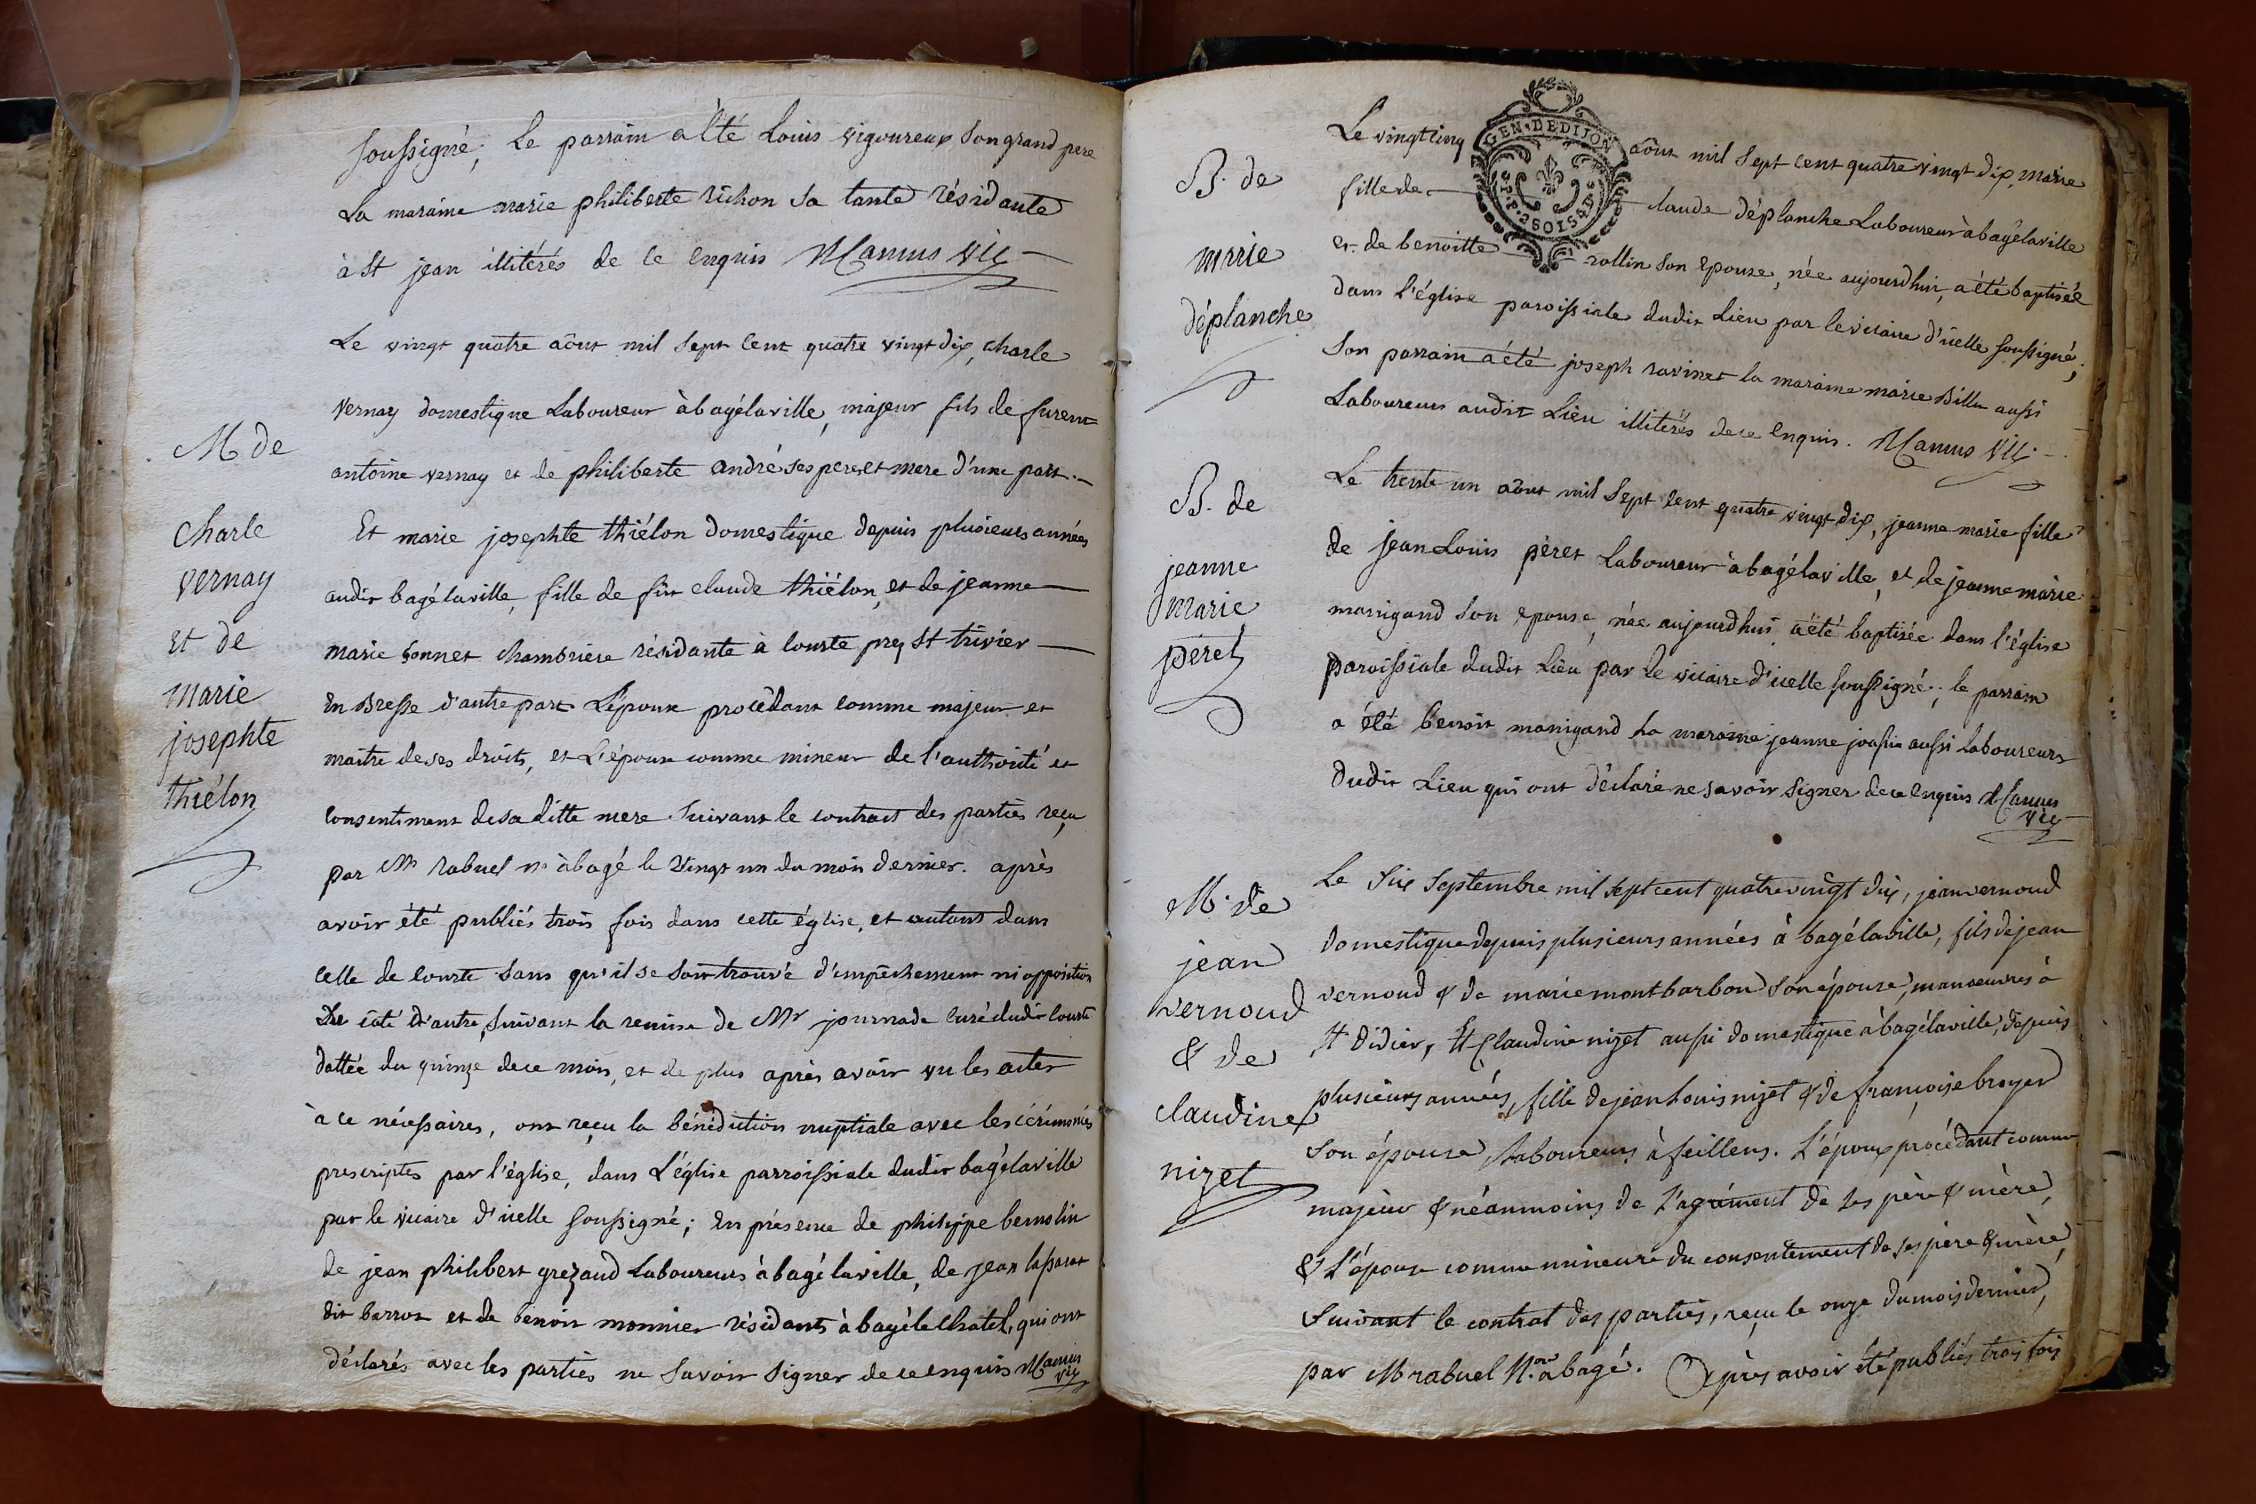 soussigné; Le parrain a été Louis vigoureux son grand pere
La maraine marie philiberte richon sa tante résidante
à St jean illitérés de ce enquis MCamus Vic
M de
charle
vernay
et de
marie
josephte
thiélon
Le vingt quatre aôut mil sept cent quatre vingt dix, charle
vernay domestique Laboureur à bagélaville, majeur fils de furent
antoine vernay et de philiberte andré ses pere et mere d'une part.
Et marie josephte thiélon domestique depuis plusieurs années
audit bagélaville, fille de fût claude thiélon, et de jeanne
marie sonnet chambriere résidante à lourte prez St trivier
En Bresse d'autre part L'époux procédant comme majeur et
maitre de ses droits, et L'épouse comme mineur de l'authorité et
consentiment de sa ditte mere. Suivant le contract des parties reçu
par Me rabuel n. à bagé le vingt un du mois dernier. après
avoir été publiés trois fois dans cette église, et autant dans
celle de courte sans qu'il se soit trouvé d'empêchement ni opposition
De côté d'autre, suivant la remise de Mr journade curé dudit courte
dattée du quinze de ce mois, et de plus après avoir vu les actes
à ce nécessaires, ont reçu la bénédiction nuptiale avec les cérémonies
prescriptes par l'église, dans L'église parroissiale dudit bagélaville
par le vicaire d'icelle soussigné; En présence de philippe bernolin
de jean philibert grezaud Laboureurs à bagélaville, de jean lassarat
dit barrot et de benoit monnier résidants à bagé le chatel, qui ont
déclarés avec les parties ne savoir signer de ce enquis MCamus
vic
B. de
marie
déplanche
GEN. DE DIJON
Le vingt cinq aôut mil sept cent quatre vingt dix, marie
fille de claude déplanche Laboureur à bagélaville
et de benoitte rollin son epouse, née aujourdhui, a été baptisée
dans l'église paroissiale dudit Lieu par le vicaire d'icelle soussigné,
Son parrain a été joseph ravinet la maraine marie Billu aussi
Laboureurs audit Lieu illitérés de ce enquis. MCamus Vic.
B. de
jeanne
marie
peret
Le trente un aôut mil sept cent quatre vingt dix, jeanne marie fille
de jean Louis péret Laboureur à bagélaville, et de jeanne marie
manigand son epouse, née aujourdhui a été baptisée dans l'église
paroissiale dudit Lieu par le vicaire d'icelle soussigné; le parrain
a été benoit manigand La maraine jeanne aussi Laboureurs
dudit Lieu qui ont déclaré ne savoir signer de ce enquis MCamus
vic
M. de
jean
vernoud
& de
claudine
nizet
Le six septembre mil sept cent quatre vingt dix, jean vernoud
domestique depuis plusieurs années à bagélaville, fils de jean
vernoud & de marie montbarbon son épouse, manoeuvres à
St didier, Et Claudine nizet aussi domestique à bagélaville, depuis
plusieurs années, fille de jean Louis nizet & de françoise broyer
Son épouse Laboureurs à feillens. L'époux procédant comme
majeur & néanmoins de l'agrément de ses père & mère,
& L'épouse comme mineure du consentement de ses père & mère,
Suivant le contrat des parties, reçu le onze du mois dernier,
par Me rabuel Nre à bagé. Après avoir été publiés trois fois